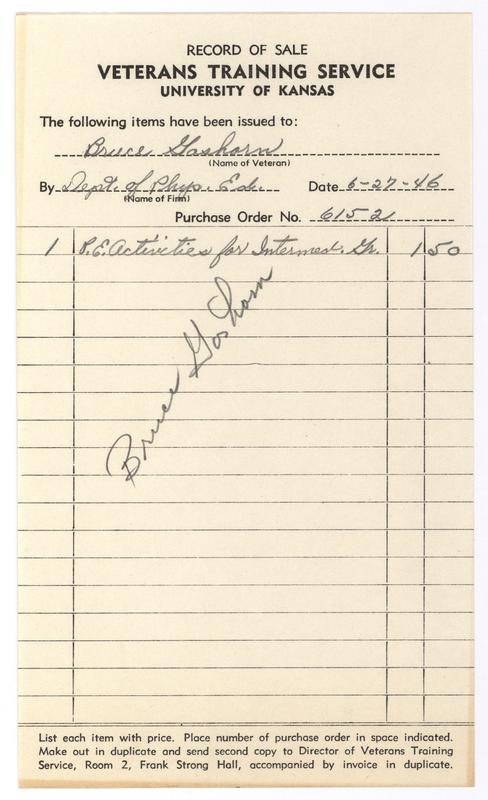 RECORD OF SALE
VETERANS TRAINING SERVICE
UNIVERSITY OF KANSAS
The following items have been issued to:
Bruce Goshorn
(Name of Veteran)
By Dept. of Phys. Ed. Date 6-27-46
(Name of Firm)
Purchase Order No. 6152
1 P.E. Activities for Intermed. Gr. 1 50
Bruce Goshorn
List each item with price. Place number of purchase order in space indicated.
Make out in duplicate and send second copy to Director of Veterans Training
Service, Room 2, Frank Strong Hall, accompanied by invoice in duplicate.